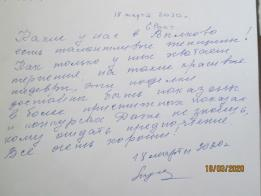 18 марта 2020г.
Какие у нас в Вилково
есть талантливые женщины!
Как только у них хватает
терпения на такие красивые
поделки. Эти поделки
достойны быть показаны
в более престижных показах
и конкурсах. Даже не знаешь,
кому отдать предпочтение.
Всё очень хорошо!
18 марта 2020г
18/03/2020